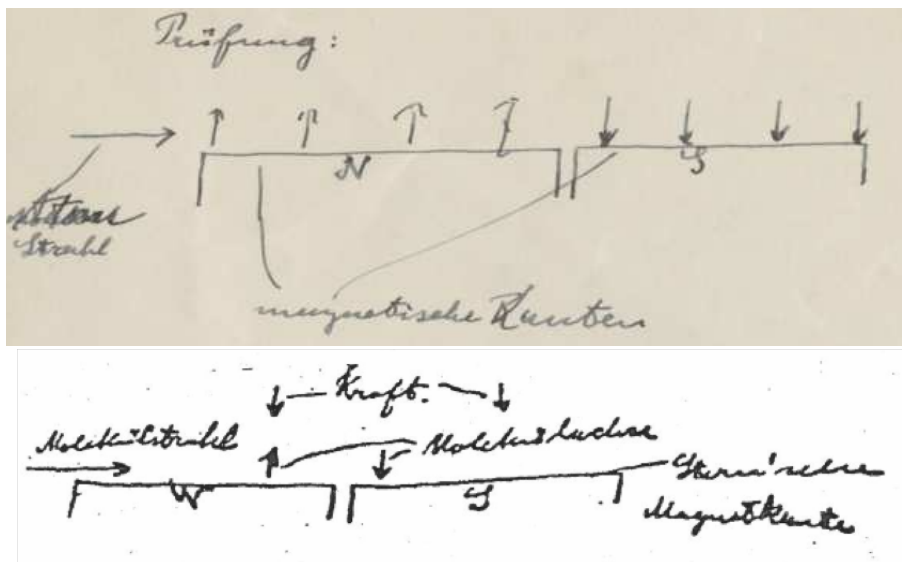 Prüfung:
N S
Strahl
magnetische Kanten
Kraft.
Molekülstrahl
Molekülachse
N S
Stern'sche
Magnetkante